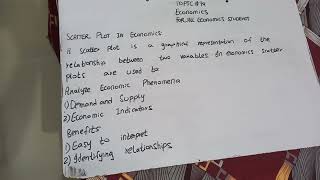 TOPIC #14
Economics
FOR ALL Economics STUDENTS
SCATTER PLOT IN Economics
A scatter plot is a graphical representation of the
relationship between two variables. In economics scatter
plots are used to
Analyze Economic Phenomena
1) Demand and Supply
2) Economic Indicators
Benefits
1) Easy to interpret
2) Identifying relationships